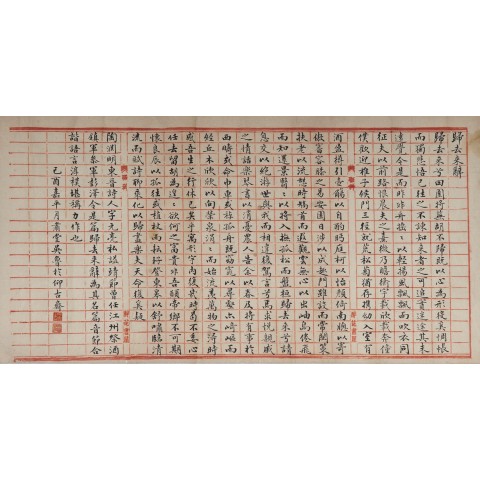 歸去來辭
歸去來兮田園將蕪胡不歸既以心為形役奚惆悵
而獨悲悟已往之不諫知來者之可追實迷途其未
遠覺今是而昨非舟搖〻以輕揚風飄飄而吹衣問
征夫以前路恨晨光之熹微乃瞻衡宇載欣載奔僮
僕歡迎稚子候門三徑就荒松菊猶存攜幼入室有
酒盈樽引壺觴以自酌眄庭柯以怡顏倚南牕以寄
傲審容膝之易安園日涉以成趣門雖設而常關策
扶老以流憩時矯首而遐觀雲無心以出岫鳥倦飛
而知還景翳〻以將入撫孤松而盤桓歸去來兮請
息交以絕游世與我而相違復駕言兮焉求悅親戚
之情話樂琴書以消憂農人告余以春及將有事於
西疇或命巾車或棹孤舟既窈窕以尋壑亦崎嶇而
經丘木欣欣以向榮泉涓〻而始流羨萬物之得時
感吾生之行休已矣乎寓形宇內復幾時曷不委心
任去留胡為遑〻欲何之富貴非吾願帝鄉不可期
懷良辰以孤往或植杖而耘耔登東皋以舒嘯臨清
流而賦詩聊乘化以歸盡樂夫天命復奚疑
陶淵明東晉詩人字元亮私諡靖節曾任江州祭酒
鎮軍參軍彭澤令是篇歸去來辭為其名篇音節合
諧語言淳樸堪稱力作也
己酉嘉平月肅堂吳魯於仰古齋